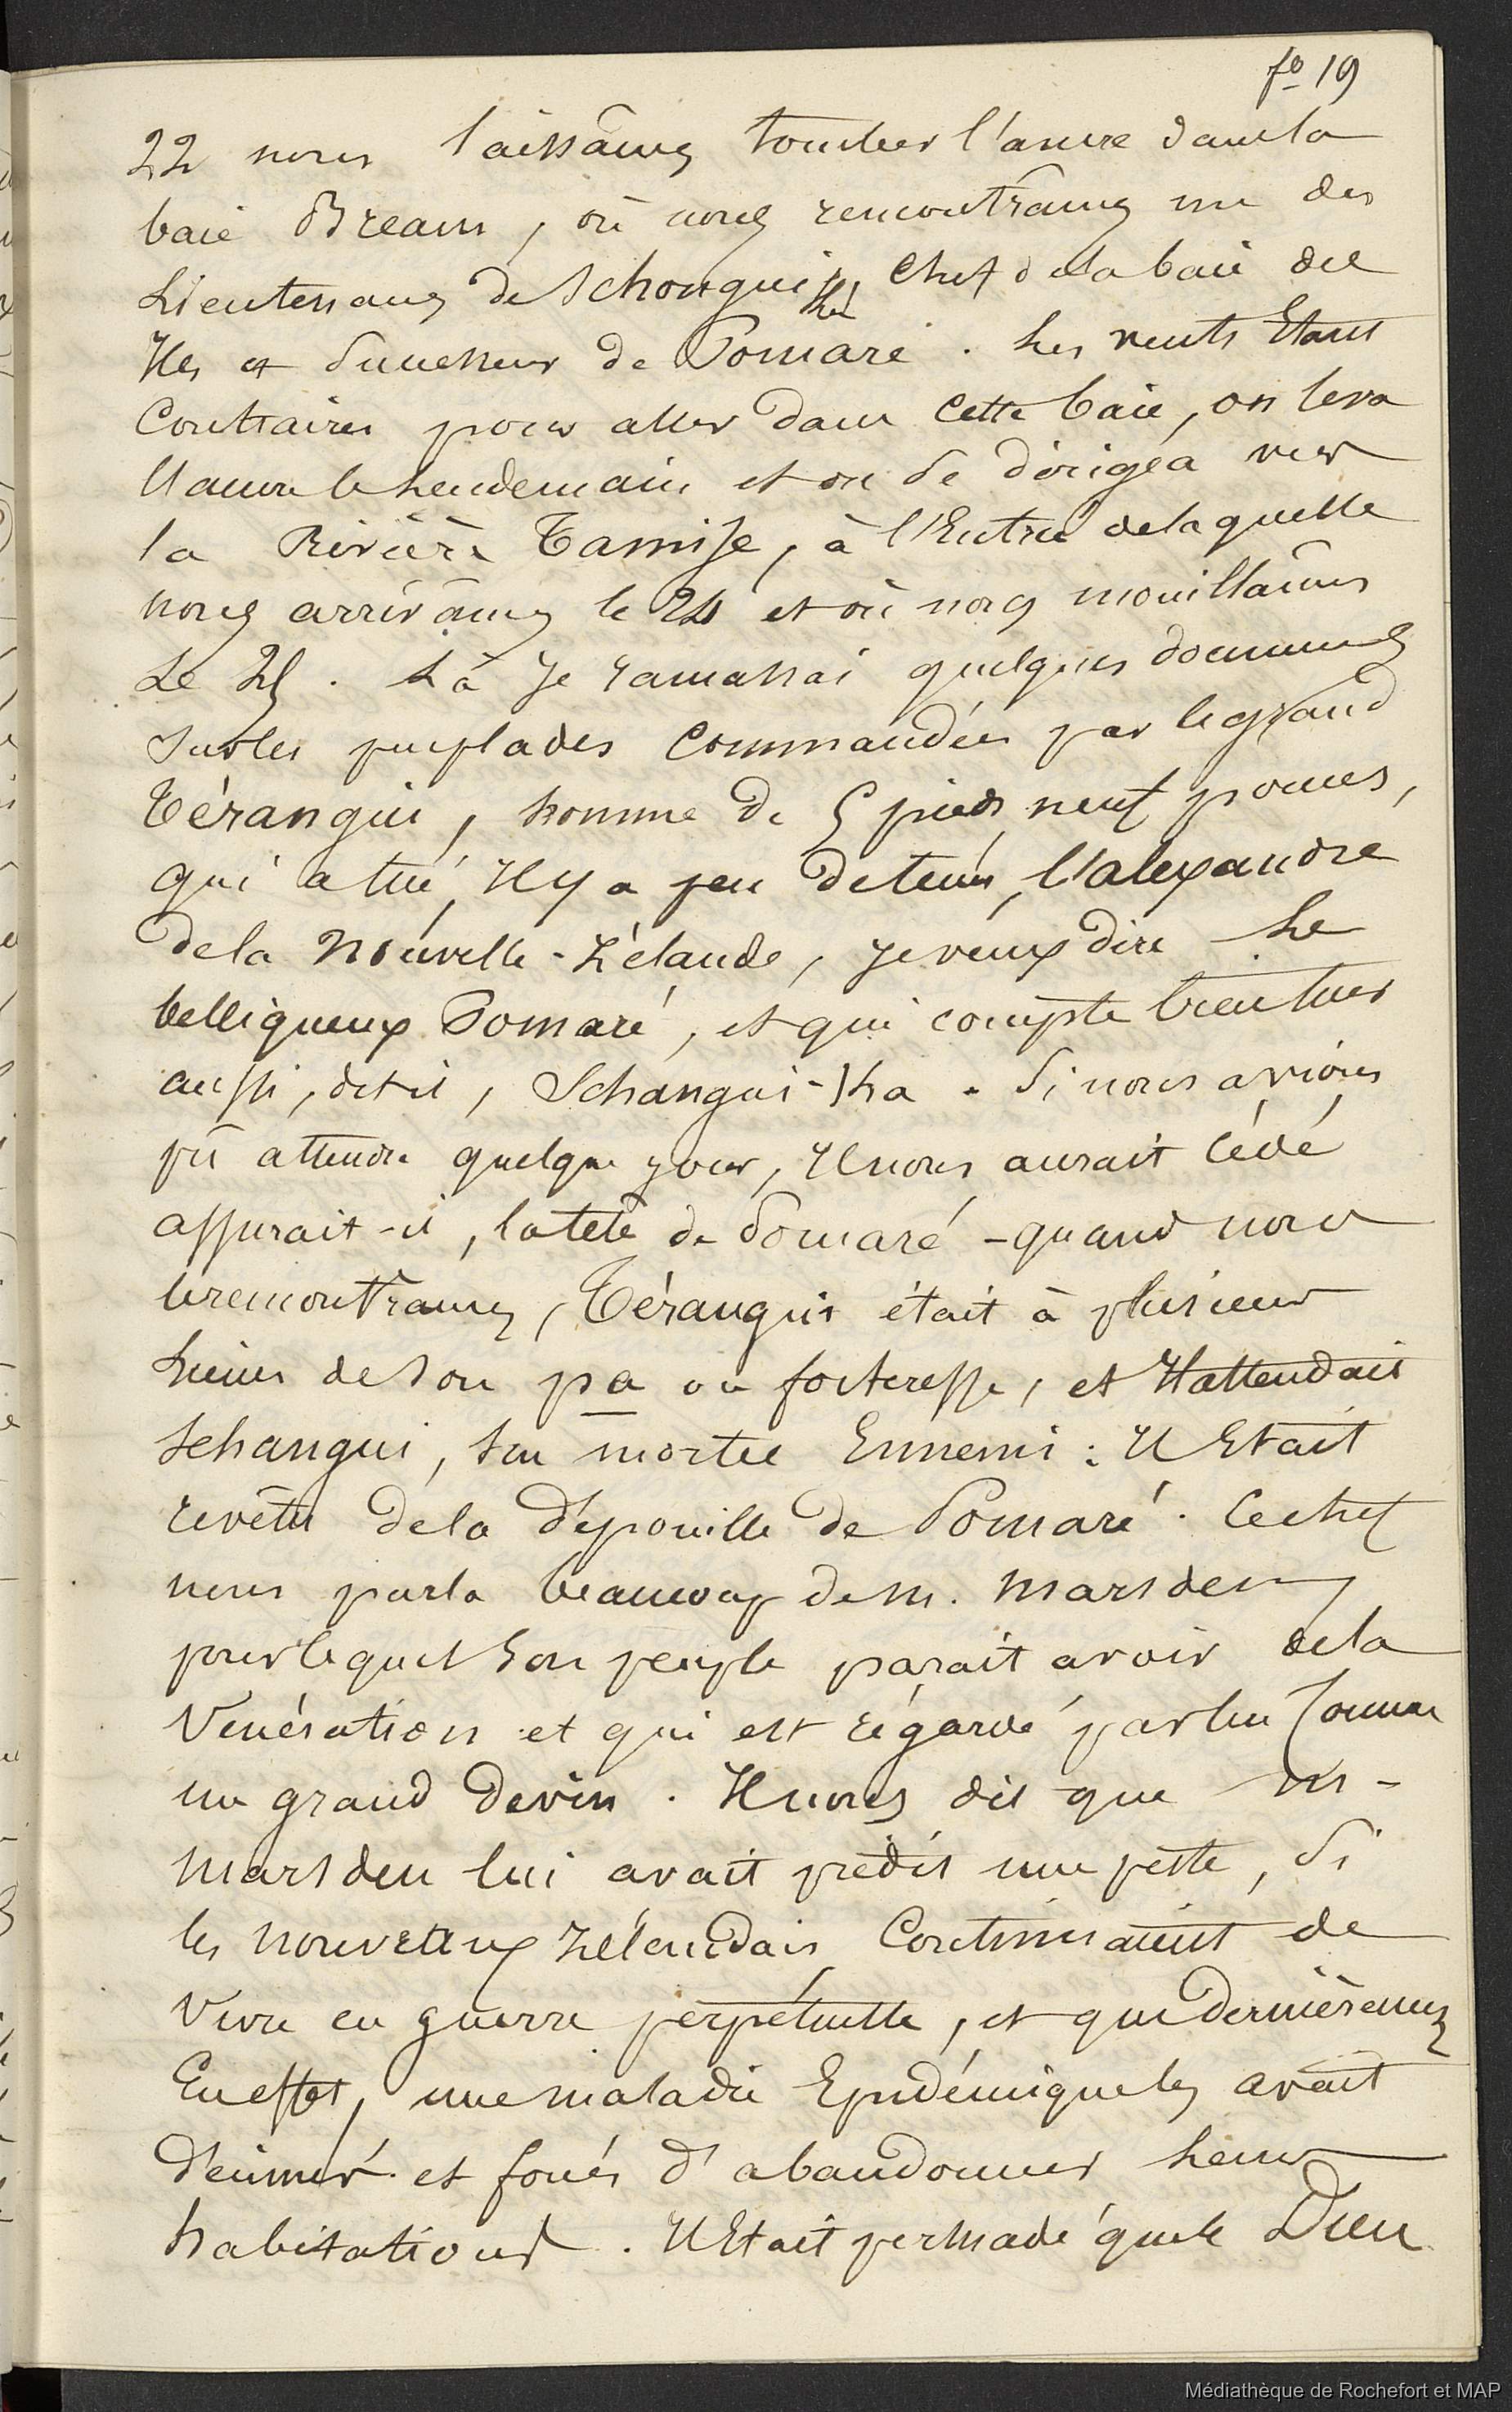 fo 19
22 nous laissâmes tomber l'ancre dans la
baie Bream, où nous rencontrames un des
Lieutenans de Schongui, Chef de la baie des
Iles et Successeur de Pomaré. Les vents Etant
Contraires pour aller dans cette baie, on leva
l'ancre le Lendemain et on se dirigéa vers
la Rivière Tamise, à l'Entrée de laquelle
nous arrivâmes le 24 et où nous mouillâmes
Le 25. Là Je ramassai quelques documens
Sur les peuplades Commandées par le grand
Térangui, homme de 5 pieds neuf pouces,
qui a tué, Il y a peu de tems, l'alexandre
de la Nouvelle-Zélande, je veux dire Le
belliqueux Pomaré, et qui compte bien tuer
aussi, dit-il, Schangui-Ika. Si nous avions
pû attendre quelque jour, Il nous aurait cédé
assurait-il, la tete de Pomaré - quand nous
le rencontrames, Térangui était à plusieurs
Lieues de Son pa ou forteresse, et Il attendait
Schangui, Son mortel Ennemi : Il Etait
revêtu de la dépouille de Pomaré. Ce chef
nous parla beaucoup de M. Marsden,
pour lequel Son peuple parait avoir de la
Vénération et qui est régardé par lui Comme
un grand Devin. Il nous dit que M-
Marsden lui avait prédit une peste, Si
les nouveaux Zélandais Continuaient de
Vivre en guerre perpétuelle, et que dernièrement
En effet, une maladie Epidémique les avait
décimés et forcés d'abandonner Leurs
habitations. Il Etait persuadé que le Dieu
Médiathèque de Rochefort et MAP